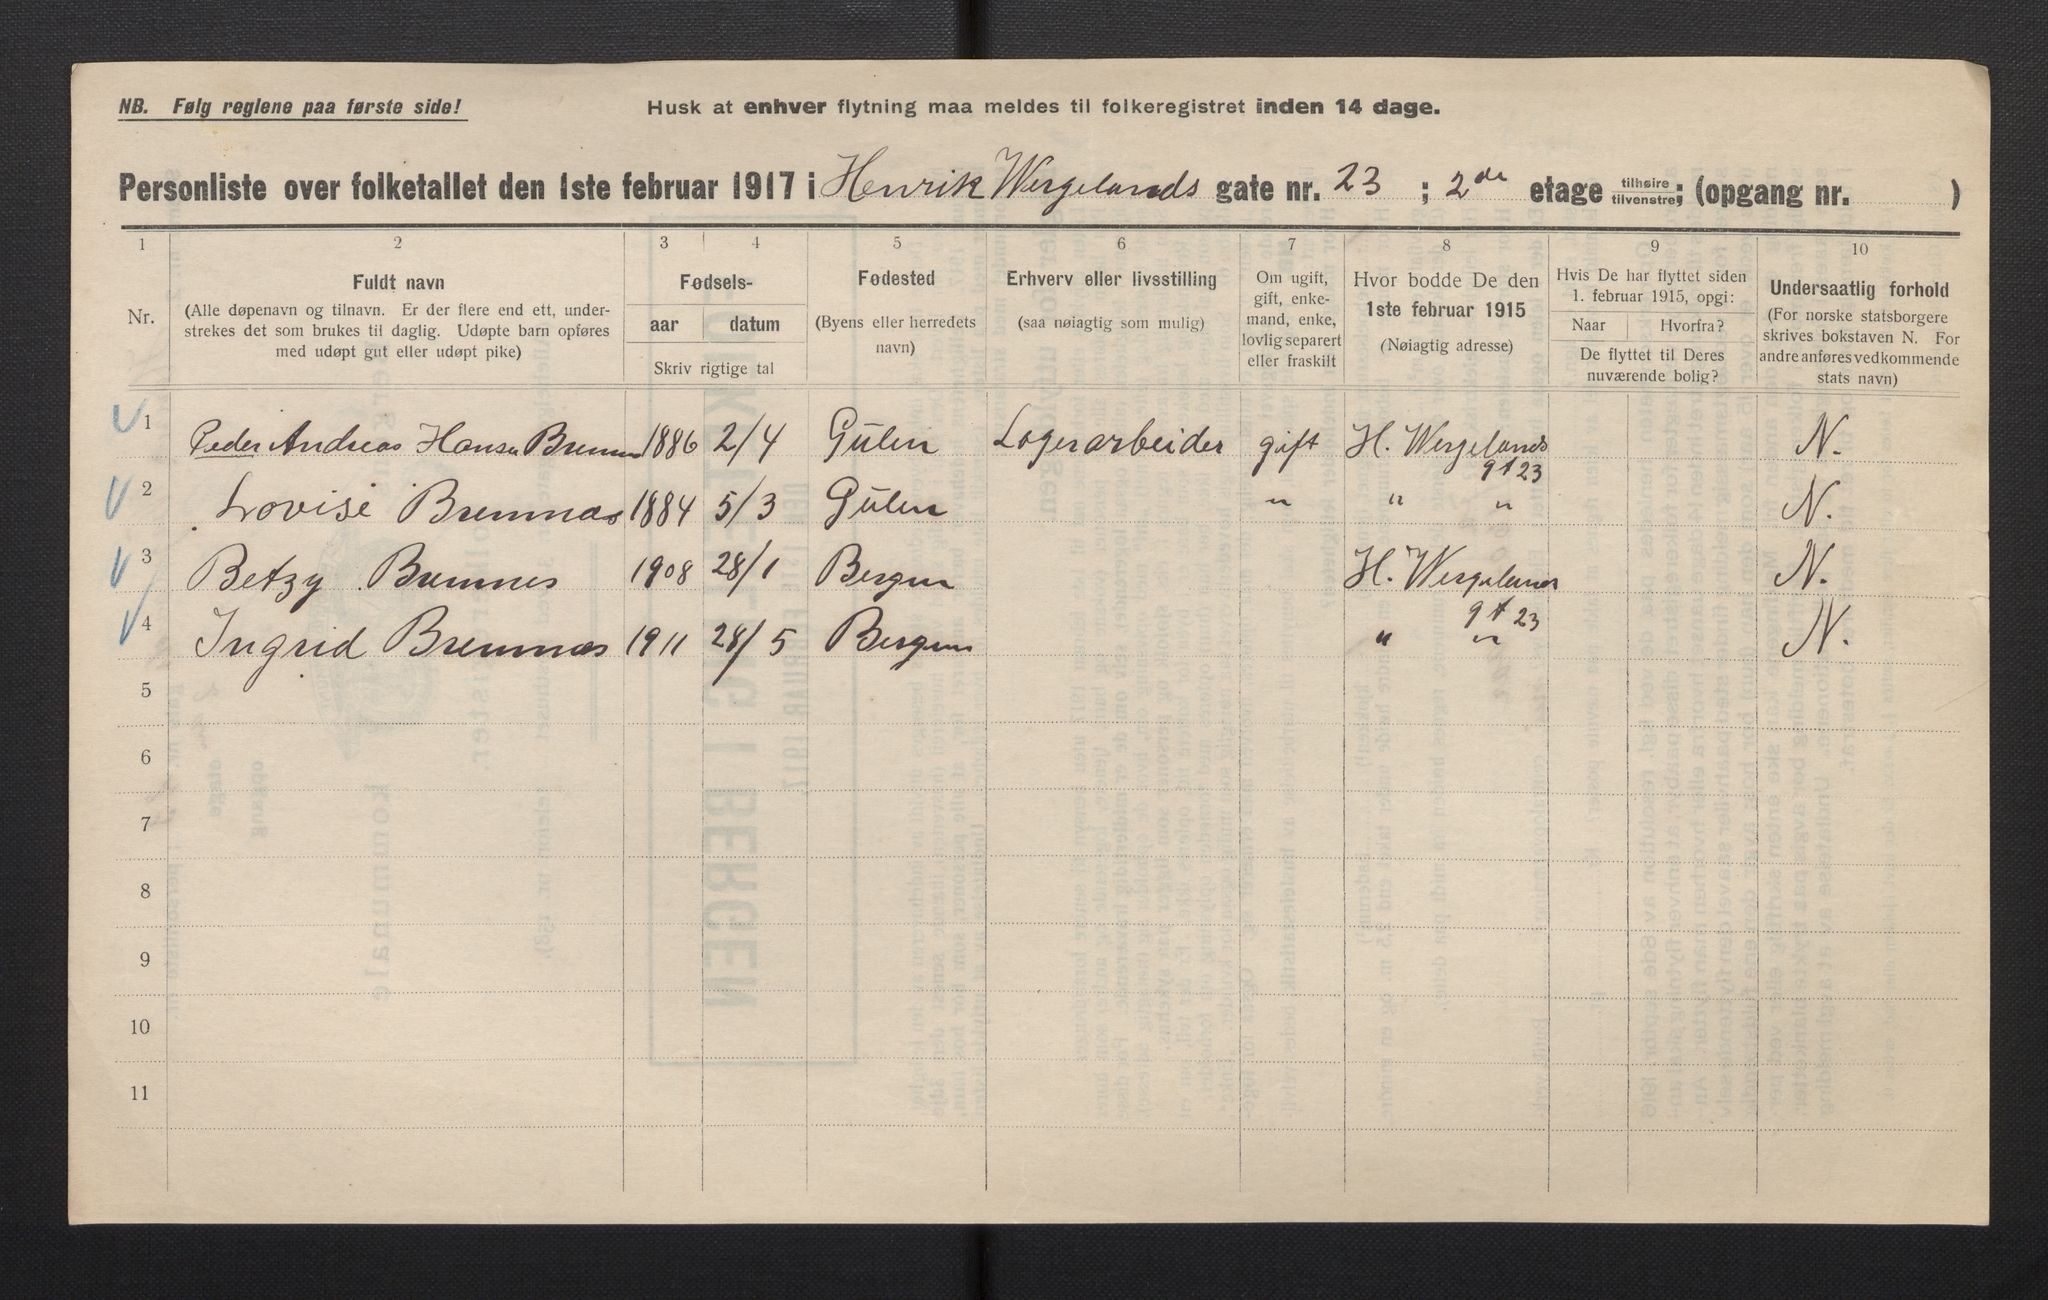 NB. Følg reglene paa første side!
Husk at enhver flytning maa meldes til folkeregistret inden 14 dage.
Personliste over folketallet den 1ste februar 1917 i Henrik Wergelands gate nr. 23 ; 2de etage tilhøire tilvenstre; (opgang nr. )
1 2 3 4 5 6 7 8 9 10
Nr.
Fuldt navn
(Alle døpenavn og tilnavn. Er der flere end ett, under-
strekes det som brukes til daglig. Udøpte barn opføres
med udøpt gut eller udøpt pike)
Fødsels-
aar datum
Skriv rigtige tal
Fødested
(Byens eller herredets
navn)
Erhverv eller livsstilling
(saa nøiagtig som mulig)
Om ugift,
gift, enke-
mand, enke,
lovlig separert
eller fraskilt
Hvor bodde De den
1ste februar 1915
(Nøiagtig adresse)
Hvis De har flyttet siden
1. februar 1915, opgi:
Naar Hvorfra?
De flyttet til Deres
nuværende bolig?
Undersaatlig forhold
(For norske statsborgere
skrives bokstaven N. For
andre anføres vedkommende
stats navn)
1 Peder Andreas Hansen Bremnes 1886 2/4 Gulen Lagerarbeider gift H. Wergelands gt 23 N.
2 Lovise Bremnæs 1884 5/3 Gulen " " " N.
3 Betzy Bremnes 1908 28/1 Bergen H. Wergelands gt 23 N.
4 Ingrid Bremnæs 1911 28/5 Bergen " " N.
5
6
7
8
9
10
11